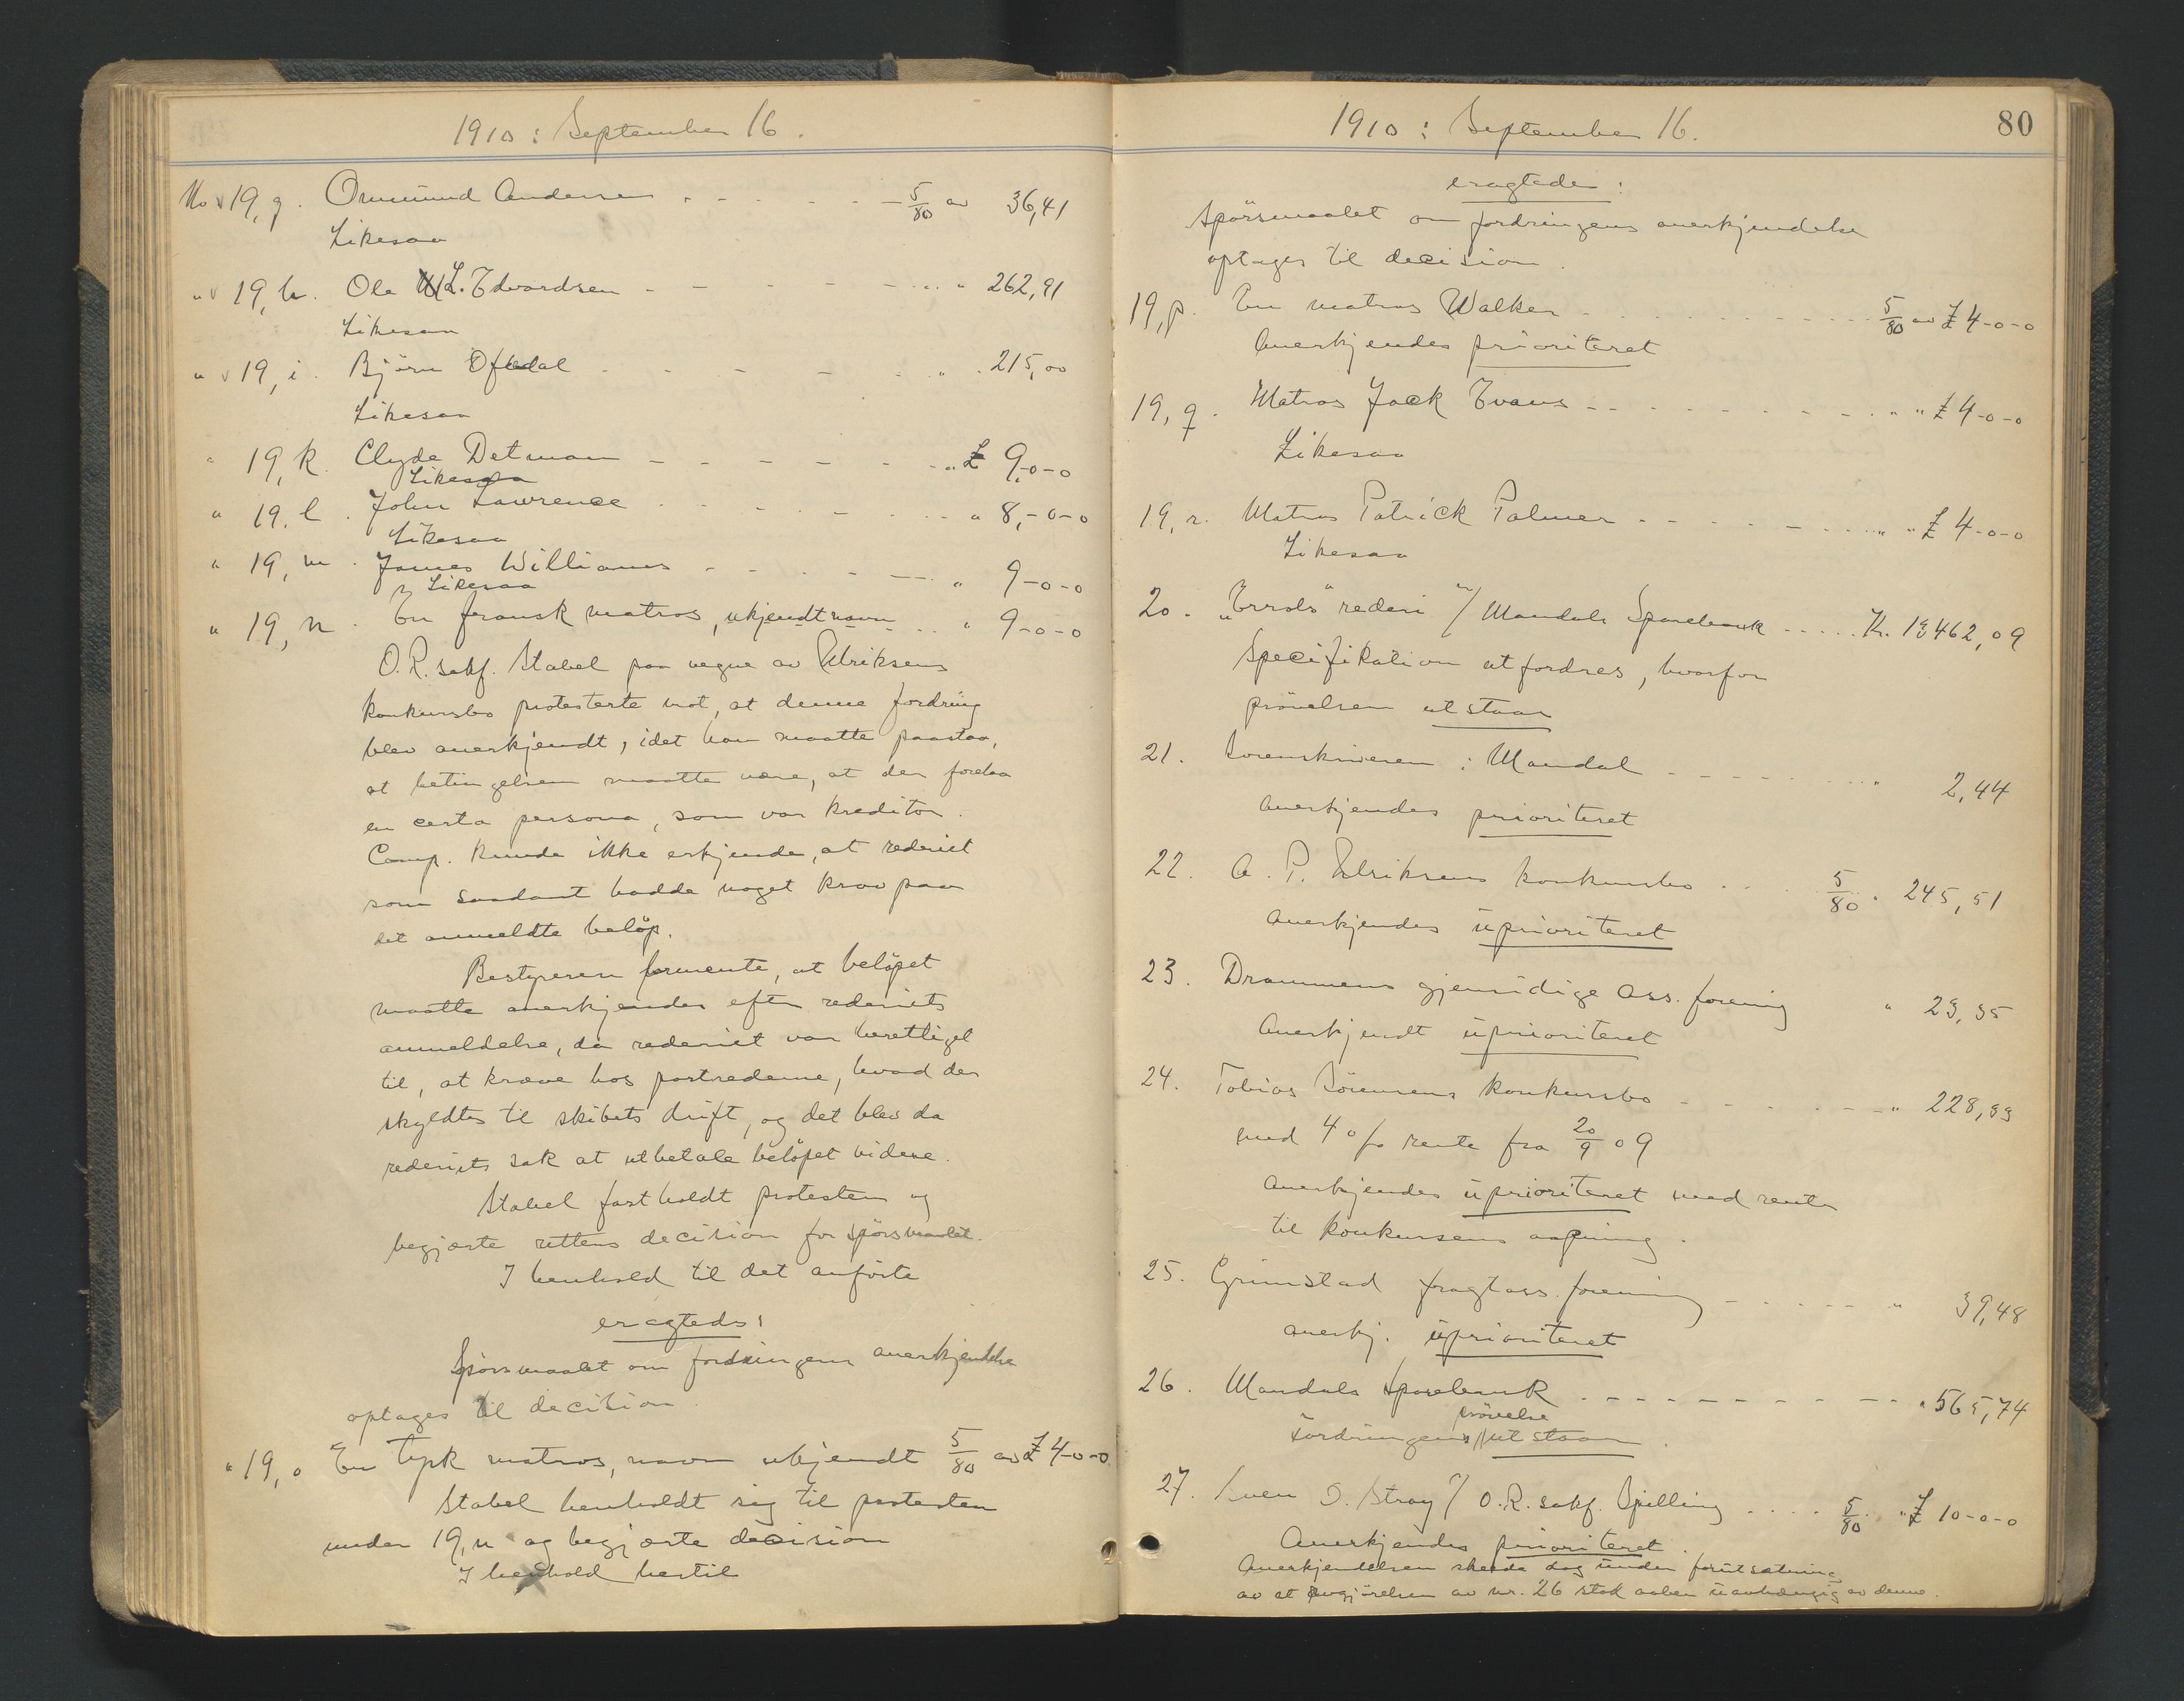 1910: September 16.
No v 19, g. Ommund Andersen - - - - - - 5/80 av 36,41
Likesaa
" v 19, h. Ole L. Edvardsen - - - - - - " " 262,91
Likesaa
" v 19, i. Björn Oftedal - - - - - " . 215,00
Likesaa
" 19, k. Clyde Detman - - - - - - " £ 9-0-0
Likesaa
" 19. l. John Lawrence - - - - - - " 8,-0-0
Likesaa
" 19, m. James Williams - - - - - " 9-0-0
Likesaa
" 19, n. En fransk matros, ukjendt navn . . " 9-0-0
O.R.sakf. Stabel paa vegne av Ulriksens
konkursbo protesterte mot, at denne fordring
blev anerkjendt, idet han maatte paastaa,
at betingelsen maatte være, at der forelaa
en certa persona, som var kreditor.
Comp. kunde ikke erkjende, at rederiet
som saadant hadde noget krav paa
det anmeldte beløp.
Bestyreren formente, at beløpet
maatte anerkjendes efter rederiets
anmeldelse, da rederiet var berettiget
til, at kræve hos partrederne, hvad der
skyldtes til skibets drift, og det blev da
rederiets sak at utbetale beløpet videre.
Stabel fastholdt protesten og
begjærte rettens decision for spörsmaalet.
I henhold til det anførte
eragtedes:
Spörsmaalet om fordringens anerkjendelse
optages til decision.
" 19, o. En tyrk matros, navn ukjendt 5/80 av £ 4-0-0
Stabel henholdt sig til protesten
under 19, n og begjærte decision
I henhold hertil
1910: September 16.
80
eragtedes:
Spörsmaalet om fordringens anerkjendelse
optages til decision.
19, p. En matros Walker - - - - - - 5/80 av £ 4-0-0
Anerkjendes prioriteret
19, q. Matros Jack Evans - - - - - - " " £ 4-0-0
Likesaa
19, r. Matros Patrick Palmer - - - - - - " " £ 4-0-0
Likesaa
20. "Errols" rederi v/ Mandals Sparebank - - - - - Kr. 13462,09
Specifikation utfordres, hvorfor
prövelsen utstaar
21. Sorenskriveren i Mandal - - - - - - " 2,44
Anerkjendes prioriteret
22. A. P. Ulriksens konkursbo . . . 5/80 " 245,51
Anerkjendes uprioriteret
23. Drammens gjensidige Ass. forening " 23,35
Anerkjendt uprioriteret
24. Tobias Sörensens konkursbo - - - - - - " 228,33
med 4 o/o rente fra 20/9 09
Anerkjendes uprioriteret med rente
til konkursens aapning.
25. Grimstad fragtass. forening - - - - - " 39,48
anerkj. uprioriteret
26. Mandals Sparebank - - - - - - - - - " 565,74
prövelse
Fordringens // utstaar.
27. Sven O. Stray v/ O.R.sakf. Spilling . . . . 5/80 " £ 10-0-0
Anerkjendes prioriteret.
Anerkjendelsen skedde dog under forutsætning
av at avgjörelsen av nr. 26 stod aaben uavhængig av denne.